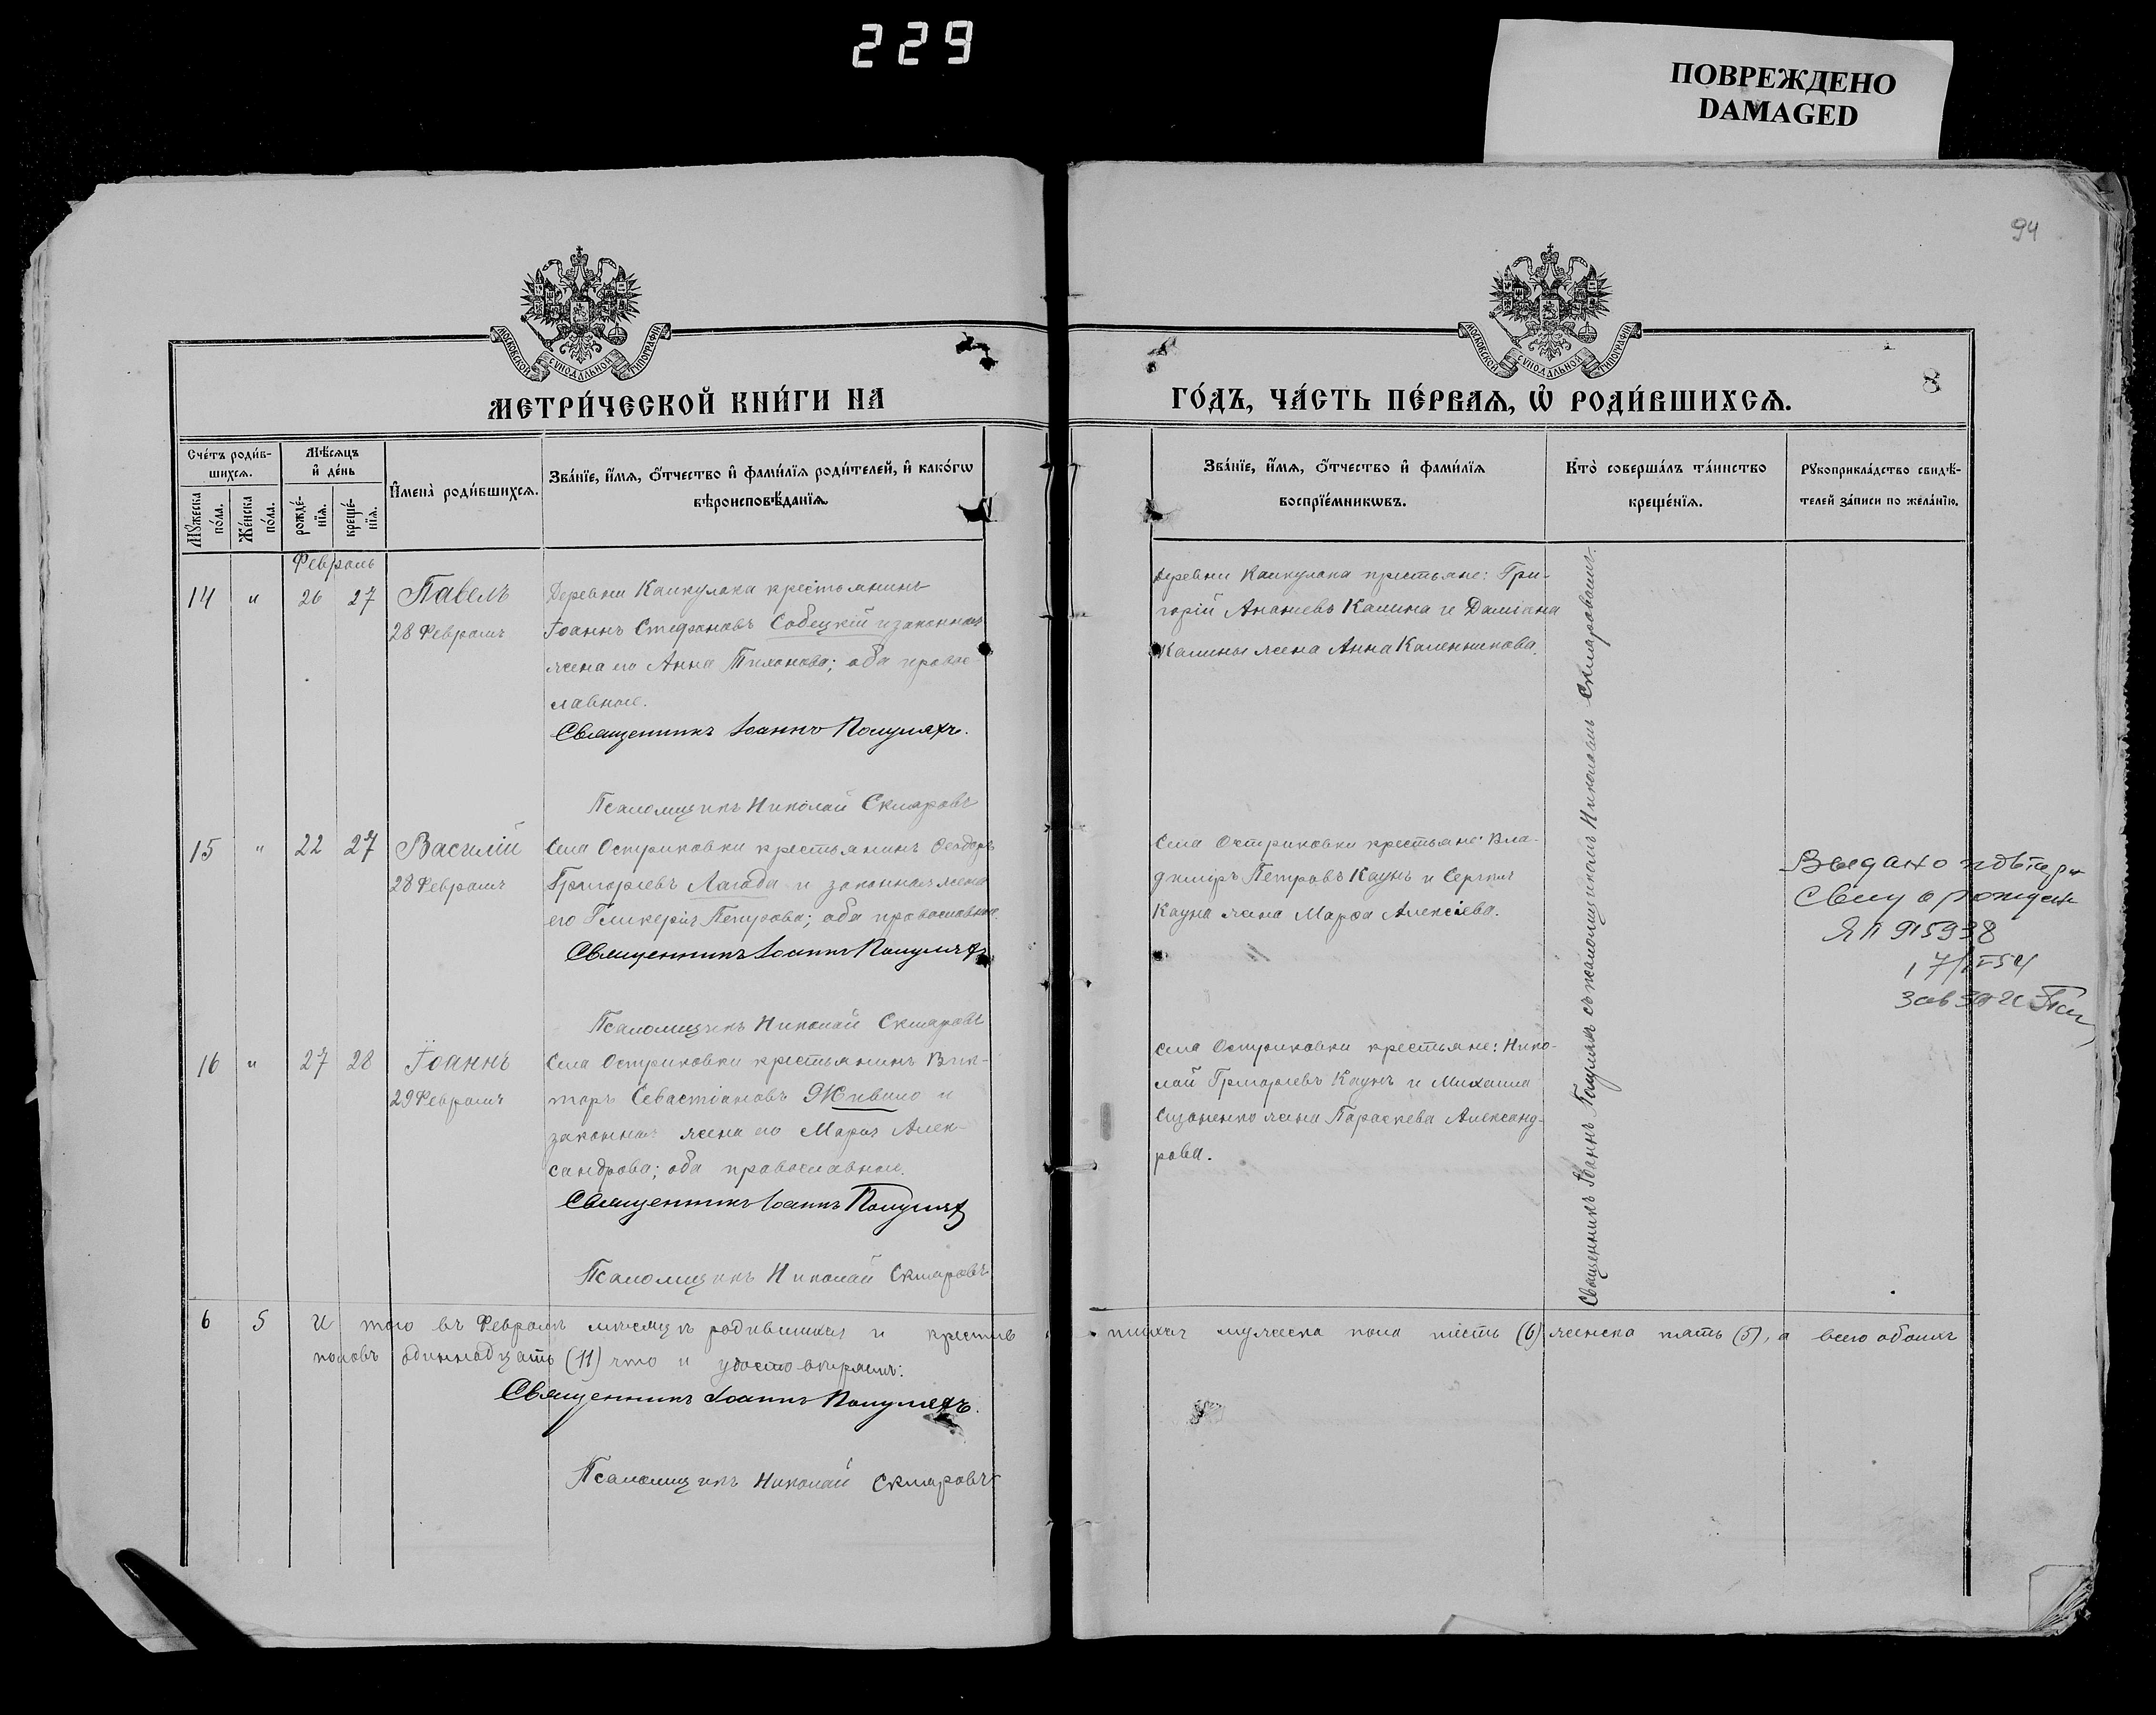 229
ПОВРЕЖДЕНО
DAMAGED
94
МОСКОВСКОЙ СѴНОДАЛЬНОЙ ТИПОГРАФІИ
МОСКОВСКОЙ СѴНОДАЛЬНОЙ ТИПОГРАФІИ
8
МЕТРИ́ЧЕСКОЙ КНИ́ГИ НА
ГО́ДЪ, ЧА́СТЬ ПЕ́РВАѦ, Ѡ РОДИ́ВШИХСѦ.
Сче́тъ роди́в-
шихсѧ.
Мꙋжеска
по́ла.
Же́нска
по́ла.
Мѣ́сѧцъ
и де́нь
рожде́-
нїѧ.
креще́-
нїѧ.
Имена̀ роди́вшихсѧ.
Зва́нїе, и́мѧ, ѻ́тчество и фами́лїѧ роди́телей, и како́гѡ
вѣроисповѣ́данїѧ.
Зва́нїе, и́мѧ, ѻ́тчество и фами́лїѧ
воспрїе́мникѡвъ.
Кто̀ соверша́лъ та́инство
креще́нїѧ.
Рꙋкоприкла́дство свидѣ́-
телей за́писи по жела́нїю.
Февраль
14 " 26 27 Павелъ
28 Февраля
Деревни Каикулака крестьянинъ
Іоаннъ Стефановъ Собецкій и законная
жена его Анна Тихонова; оба правос-
лавные.
Священникъ Іоаннъ Полуляхъ.
Псаломщикъ Николай Скляровъ
Деревни Каикулака крестьяне: Гри-
горій Ананіевъ Калина и Даміана
Калины жена Анна Каленникова.
15 " 22 27 Василій
28 Февраля
Села Остриковки крестьянинъ Ѳеодоръ
Григорьевъ Лагода и законная жена
его Гликерія Петрова; оба православные.
Священникъ Іоаннъ Полуляхъ
Псаломщикъ Николай Скляровъ
Села Остриковки крестьяне: Вла-
диміръ Петровъ Каунъ и Сергія
Кауна жена Марѳа Алексіева.
Выдано повторн
Свид о рожден
ЯП 915938
16 " 27 28 Іоаннъ
29 Февраля
Села Остриковки крестьянинъ Вик-
торъ Севастіановъ Живило и
законная жена его Марія Алек-
сандрова; оба православные.
Священникъ Іоаннъ Полулях
Псаломщикъ Николай Скляровъ
Села Остриковки крестьяне: Нико-
лай Григорьевъ Каунъ и Михаила
жена Параскева Александ-
рова.
Священникъ Іоаннъ Полулях съ псаломщикомъ Николаемъ Скляровымъ.
6 5 И того въ Февралѣ мѣсяцѣ родившихся и крестив
шихся мужеска пола шесть (6) женска пять (5), а всего обоихъ
половъ одиннадцать (11) что и удостовѣряемъ:
Священникъ Іоаннъ Полуляхъ.
Псаломщикъ Николай Скляровъ